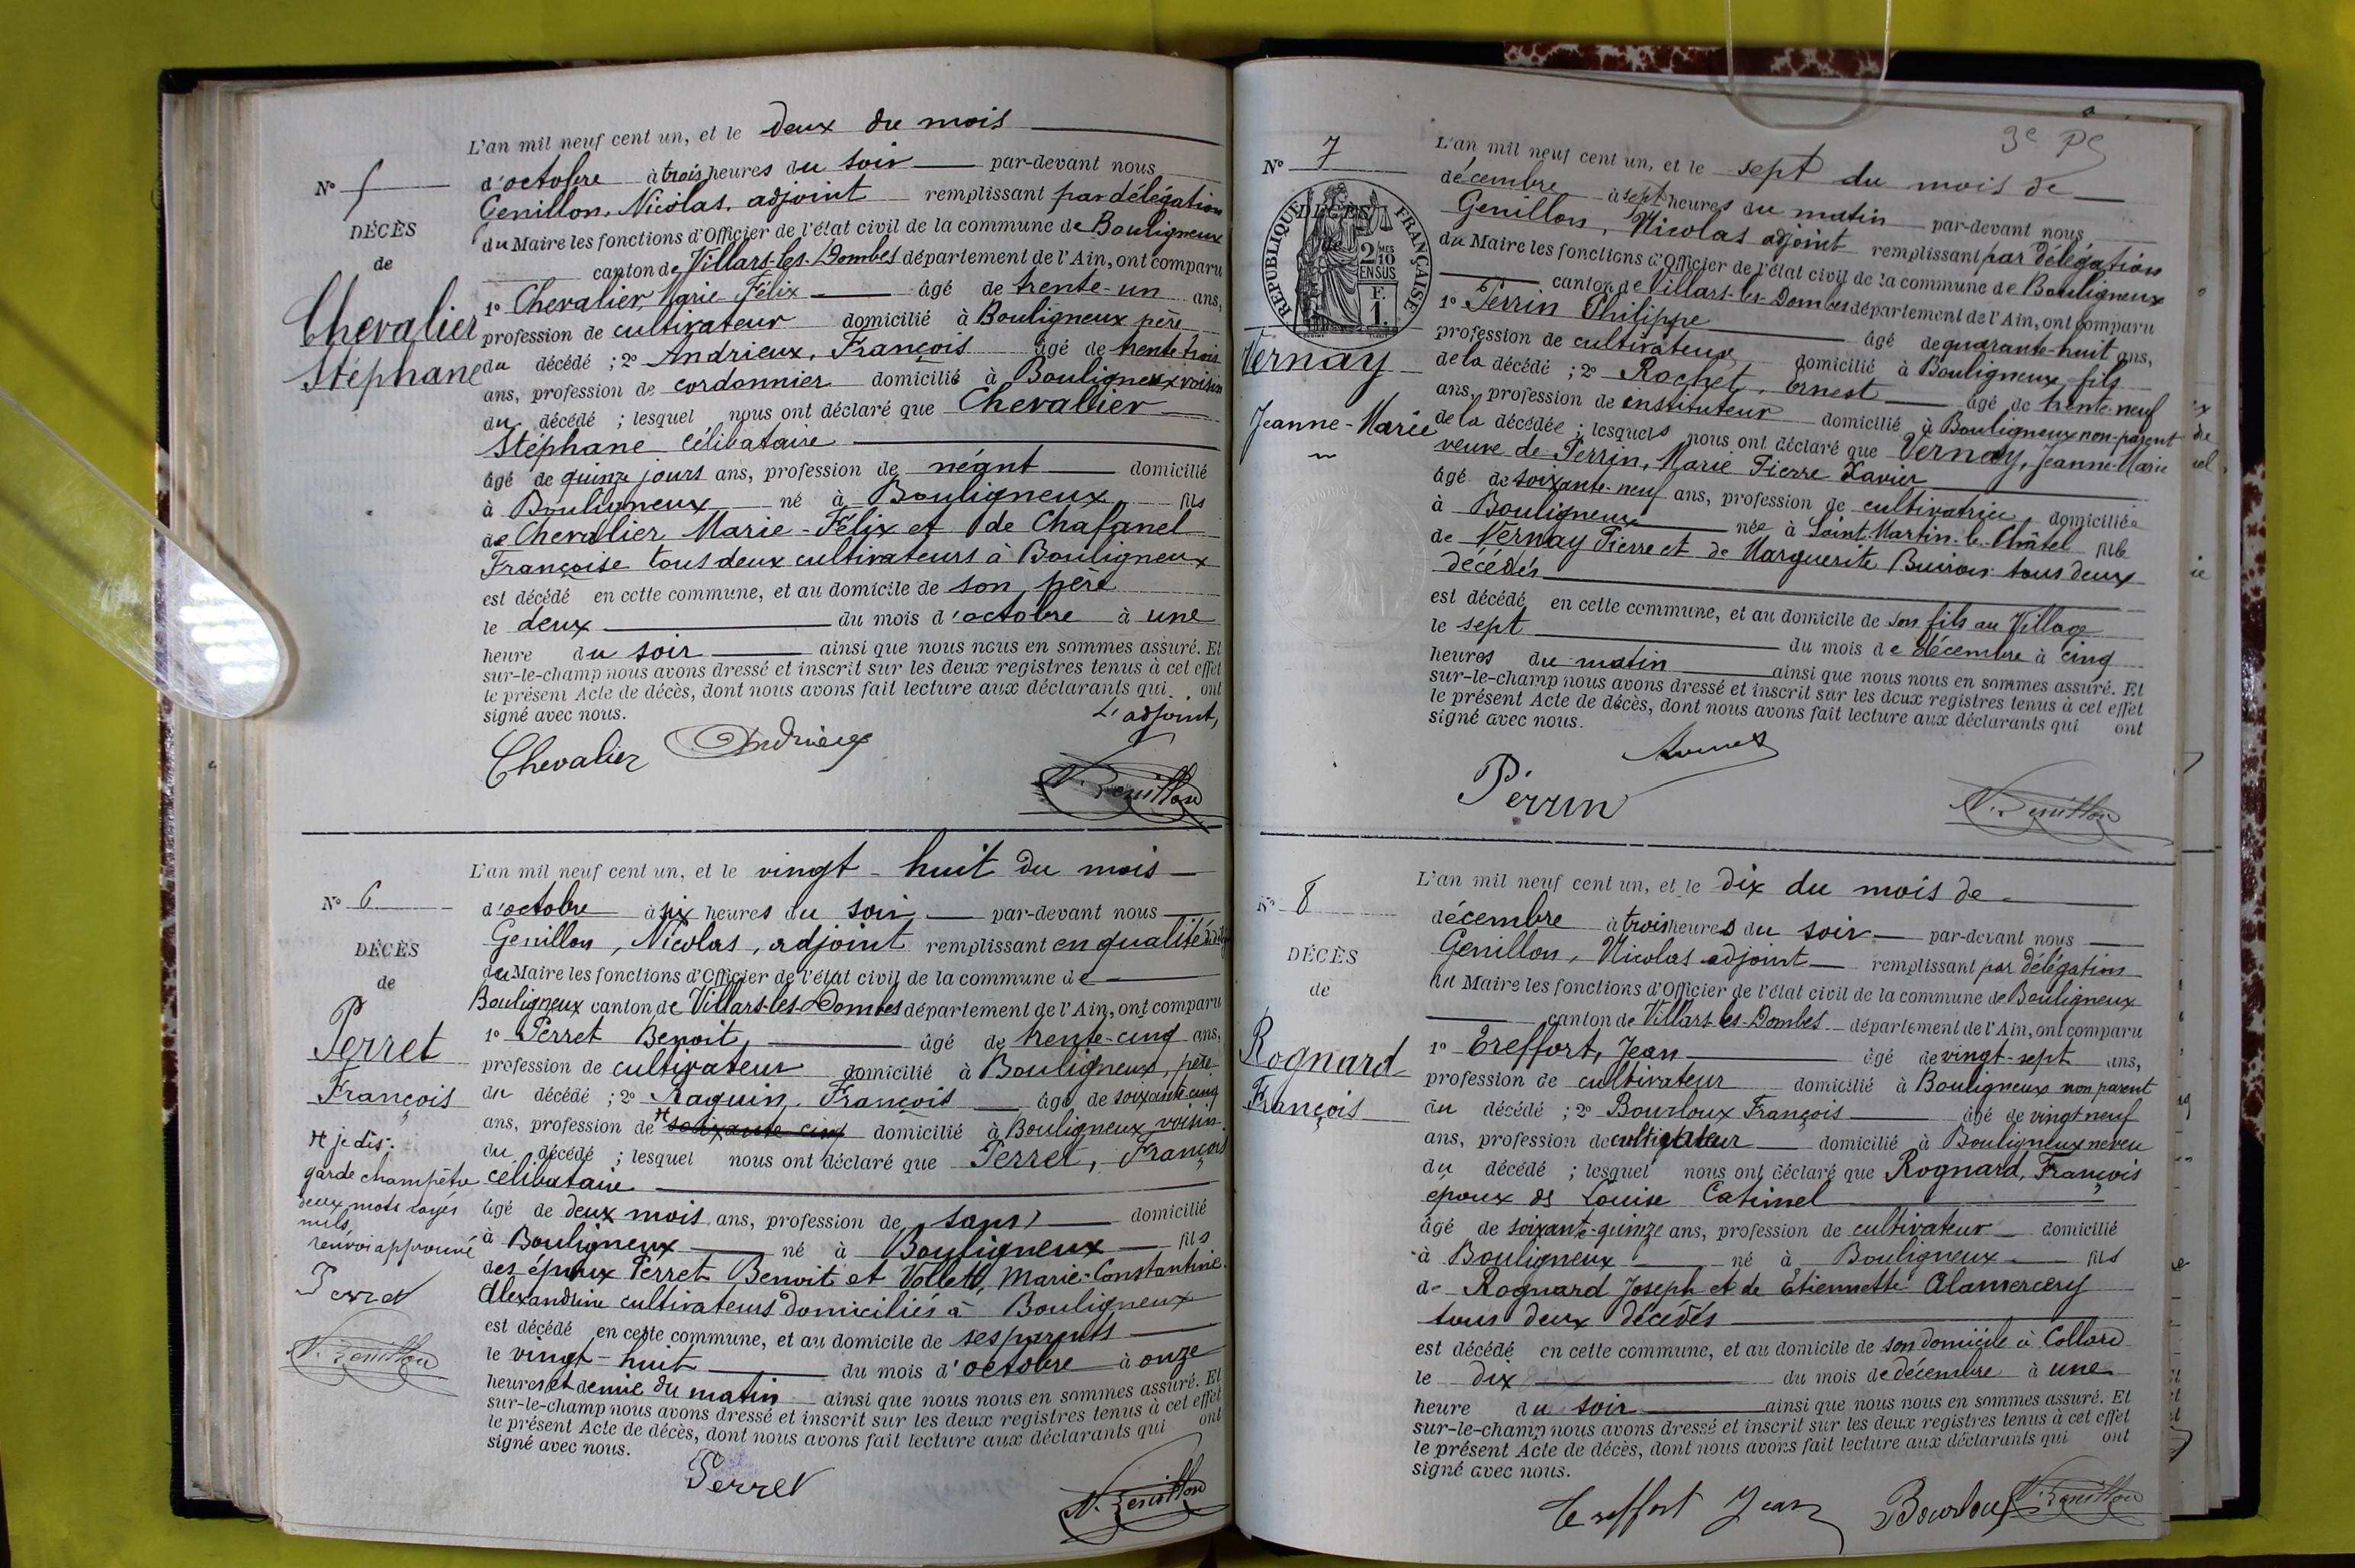 L'an mil neuf cent un, et le deux du mois
N° 5
d'octobre à trois heures du soir par-devant nous
Genillon, Nicolas, adjoint remplissant par délégation
DÉCÈS
du Maire les fonctions d'Officier de l'état civil de la commune de Bouligneux
de
canton de Villars-les-Dombes département de l'Ain, ont comparu
Chevalier
1° Chevalier, Marie Félix âgé de trente-un ans,
profession de cultivateur domicilié à Bouligneux père
Stéphane
du décédé ; 2° Andrieux, François âgé de trente-trois
ans, profession de cordonnier domicilié à Bouligneux voisin
du décédé ; lesquel nous ont déclaré que Chevallier
Stéphane célibataire
âgé de quinze jours ans, profession de néant domicilié
à Bouligneux né à Bouligneux fils
de Chevalier Marie-Félix et de Chafanel
Françoise tous deux cultivateurs à Bouligneux
est décédé en cette commune, et au domicile de son père
le deux du mois d'octobre à une
heure du soir ainsi que nous nous en sommes assuré. Et
sur-le-champ nous avons dressé et inscrit sur les deux registres tenus à cet effet
le présent Acte de décès, dont nous avons fait lecture aux déclarants qui ont
signé avec nous.
L'adjoint,
Chevalier Andrieux
N. Genillon
L'an mil neuf cent un, et le vingt-huit du mois
N° 6
d'octobre à six heures du soir par-devant nous
Genillon, Nicolas, adjoint remplissant en qualité
DÉCÈS
du Maire les fonctions d'Officier de l'état civil de la commune de
de
Bouligneux canton de Villars-les-Dombes département de l'Ain, ont comparu
Perret
1° Perret Benoit, âgé de trente-cinq ans,
profession de cultivateur domicilié à Bouligneux, père
François
du décédé ; 2° Raquin, François âgé de soixante cinq
ans, profession de soixante cinq domicilié à Bouligneux, voisin
je dis :
garde champêtre
deux mots rayés
nuls,
renvoi approuvé
Perret
N. Genillon
du décédé ; lesquel nous ont déclaré que Perret, François
célibataire
âgé de deux mois ans, profession de sans domicilié
à Bouligneux né à Bouligneux fils
des époux Perret Benoit et Vollett, Marie-Constantine
Alexandrine cultivateurs domiciliés à Bouligneux
est décédé en cette commune, et au domicile de ses parents
le vingt-huit du mois d'octobre à onze
heures et demie du matin ainsi que nous nous en sommes assuré. Et
sur-le-champ nous avons dressé et inscrit sur les deux registres tenus à cet effet
le présent Acte de décès, dont nous avons fait lecture aux déclarants qui ont
signé avec nous.
Perret
N. Genillon
L'an mil neuf cent un, et le sept du mois de
N° 7
décembre à sept heures du matin par-devant nous
Genillon, Nicolas adjoint remplissant par délégation
DÉCÈS
de
RÉPUBLIQUE FRANÇAISE
2 MES
10
EN SUS
F.
1.
du Maire les fonctions d'Officier de l'état civil de la commune de Bouligneux
canton de Villars-les-Dombes département de l'Ain, ont comparu
1° Perrin Philippe âgé de quarante-huit ans,
profession de cultivateur domicilié à Bouligneux, fils
Vernay
Jeanne-Marie
de la décédé ; 2° Rochet, Ernest âgé de trente-neuf
ans, profession de instituteur domicilié à Bouligneux non-parent
de la décédée ; lesquels nous ont déclaré que Vernay, Jeanne-Marie
veuve de Perrin, Marie Pierre Xavier
âgé de soixante-neuf ans, profession de cultivatrice domiciliée
à Bouligneux née à Saint-Martin-le-Châtel fille
de Vernay Pierre et de Marguerite tous deux
décédés
est décédé en cette commune, et au domicile de son fils au Village
le sept du mois de décembre à cinq
heures du matin ainsi que nous nous en sommes assuré. Et
sur-le-champ nous avons dressé et inscrit sur les deux registres tenus à cet effet
le présent Acte de décès, dont nous avons fait lecture aux déclarants qui ont
signé avec nous.
Perrin
N. Genillon
L'an mil neuf cent un, et le dix du mois de
N° 8
décembre à trois heures du soir par-devant nous
Genillon, Nicolas adjoint remplissant par délégation
DÉCÈS
du Maire les fonctions d'Officier de l'état civil de la commune de Bouligneux
de
canton de Villars-les-Dombes département de l'Ain, ont comparu
Rognard
1° Treffort, Jean âgé de vingt-sept ans,
profession de cultivateur domicilié à Bouligneux non parent
François
du décédé ; 2° Bourloux François âgé de vingt neuf
ans, profession de cultivateur domicilié à Bouligneux neveu
du décédé ; lesquel nous ont déclaré que Rognard, François
époux de Louise Catinel
âgé de soixante-quinze ans, profession de cultivateur domicilié
à Bouligneux né à Bouligneux fils
de Rognard Joseph et de Etiennette Alamercery
tous deux décédés
est décédé en cette commune, et au domicile de son domicile à Collard
le dix du mois de décembre à une
heure du soir ainsi que nous nous en sommes assuré. Et
sur-le-champ nous avons dressé et inscrit sur les deux registres tenus à cet effet
le présent Acte de décès, dont nous avons fait lecture aux déclarants qui ont
signé avec nous.
Treffort Jean Bourloux N. Genillon